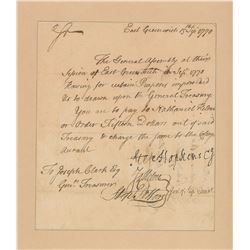 East Greenwich 15th Sep 1770
The General Assembly at their
Session at East Greenwich in Sep 1770
Having for certain Purposes impowered
Us to draw upon the General Treasury
You are to pay to Nathaniel
or Order Fifteen Dollars out of said
Treasury & charge the same to the Colony
Step Hopkins
To Joseph Clark Esq
Genl Treasurer